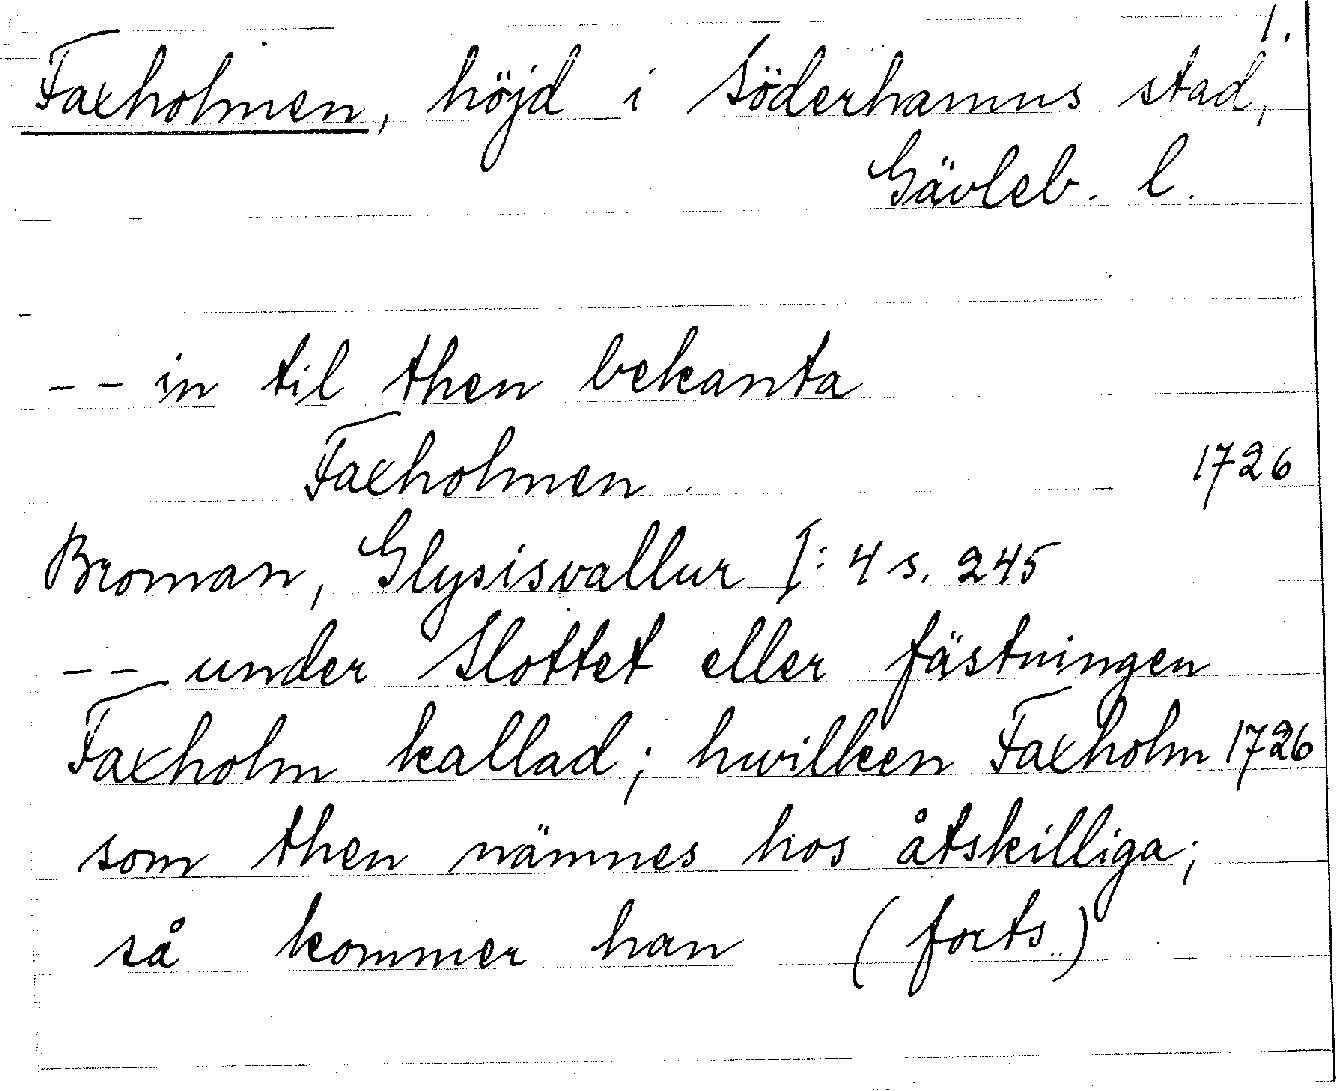 1.
Faxholmen, höjd i Söderhamns stad,
Gävleb. l.
-- in til then bekanta
Faxholmen 1726
Broman, Glysisvallur I: 4 s. 245
-- under Slottet eller fästningen
Faxholm kallad; hwilken Faxholm 1726
som then nämnes hos åtskilliga;
så kommer han (forts)